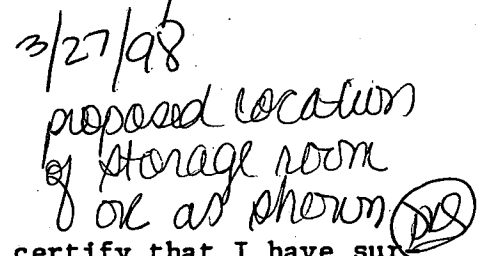 3/27/98
proposed location
of storage room
ok as shown DRS
certify that I have sur-